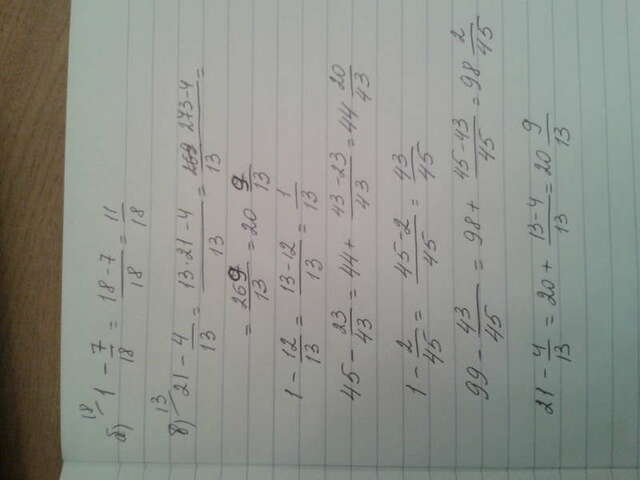 б) 1 - 7/18 = 18-7/18 = 11/18
18
в) 21 - 4/13 = 13·21-4/13 = 273-4/13 =
13
= 269/13 = 20 9/13
1 - 12/13 = 13-12/13 = 1/13
45 - 23/43 = 44 + 43-23/43 = 44 20/43
1 - 2/45 = 45-2/45 = 43/45
99 - 43/45 = 98 + 45-43/45 = 98 2/45
21 - 4/13 = 20 + 13-4/13 = 20 9/13